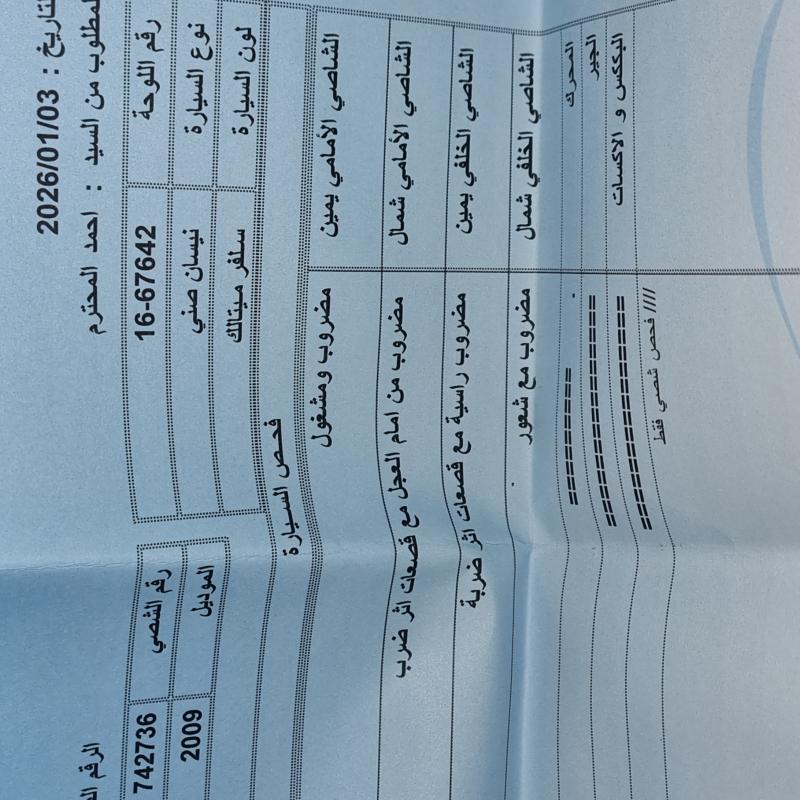 التاريخ : 2026/01/03
المطلوب من السيد : احمد المحترم
الرقم
رقم اللوحة 16-67642 رقم الشصي 742736
نوع السيارة نيسان صني الموديل 2009
لون السيارة سلفر ميتالك
فحص السيارة
الشاصي الأمامي يمين مضروب ومشغول
الشاصي الأمامي شمال مضروب من امام العجل مع قصعات اثر ضرب
الشاصي الخلفي يمين مضروب راسية مع قصعات اثر ضربة
الشاصي الخلفي شمال مضروب مع شعور
المحرك ==========
الجير =================
البككس و الاكسات =================
//// فحص شصي فقط